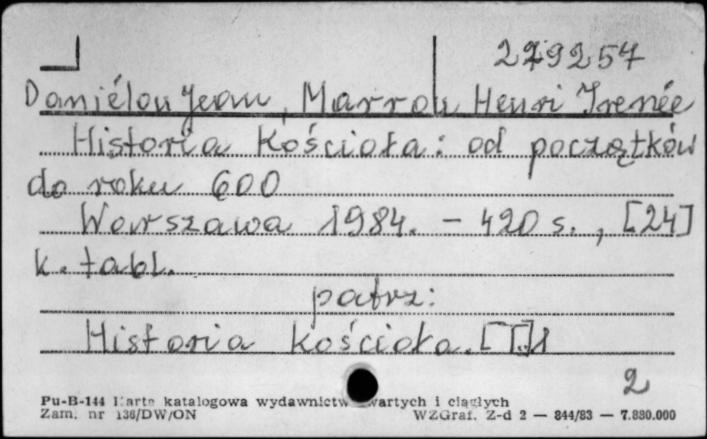 229257
Daniélou Jean, Marrou Henri Irenée
Historia Kościoła: od początków
do roku 600
Warszawa 1984. - 420 s., [24]
k. tabl.
patrz:
Historia Kościoła. [T.] 1
2
Pu-B-144 Karta katalogowa wydawnictw zwartych i ciągłych
Zam. nr 136/DW/ON WZGraf. Z-d 2 — 844/83 — 7.880.000